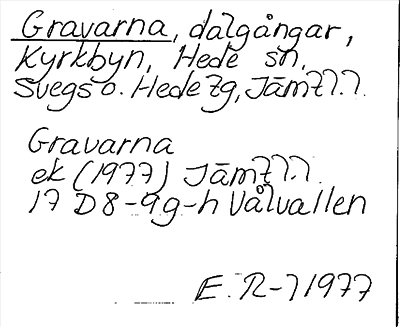 Gravarna, dalgångar,
Kyrkbyn, Hede sn,
Svegs o. Hede tg, Jämtl.
Gravarna
ek (1977) Jämtl.
17 D 8-9g-h Vålvallen
E. R-n 1977